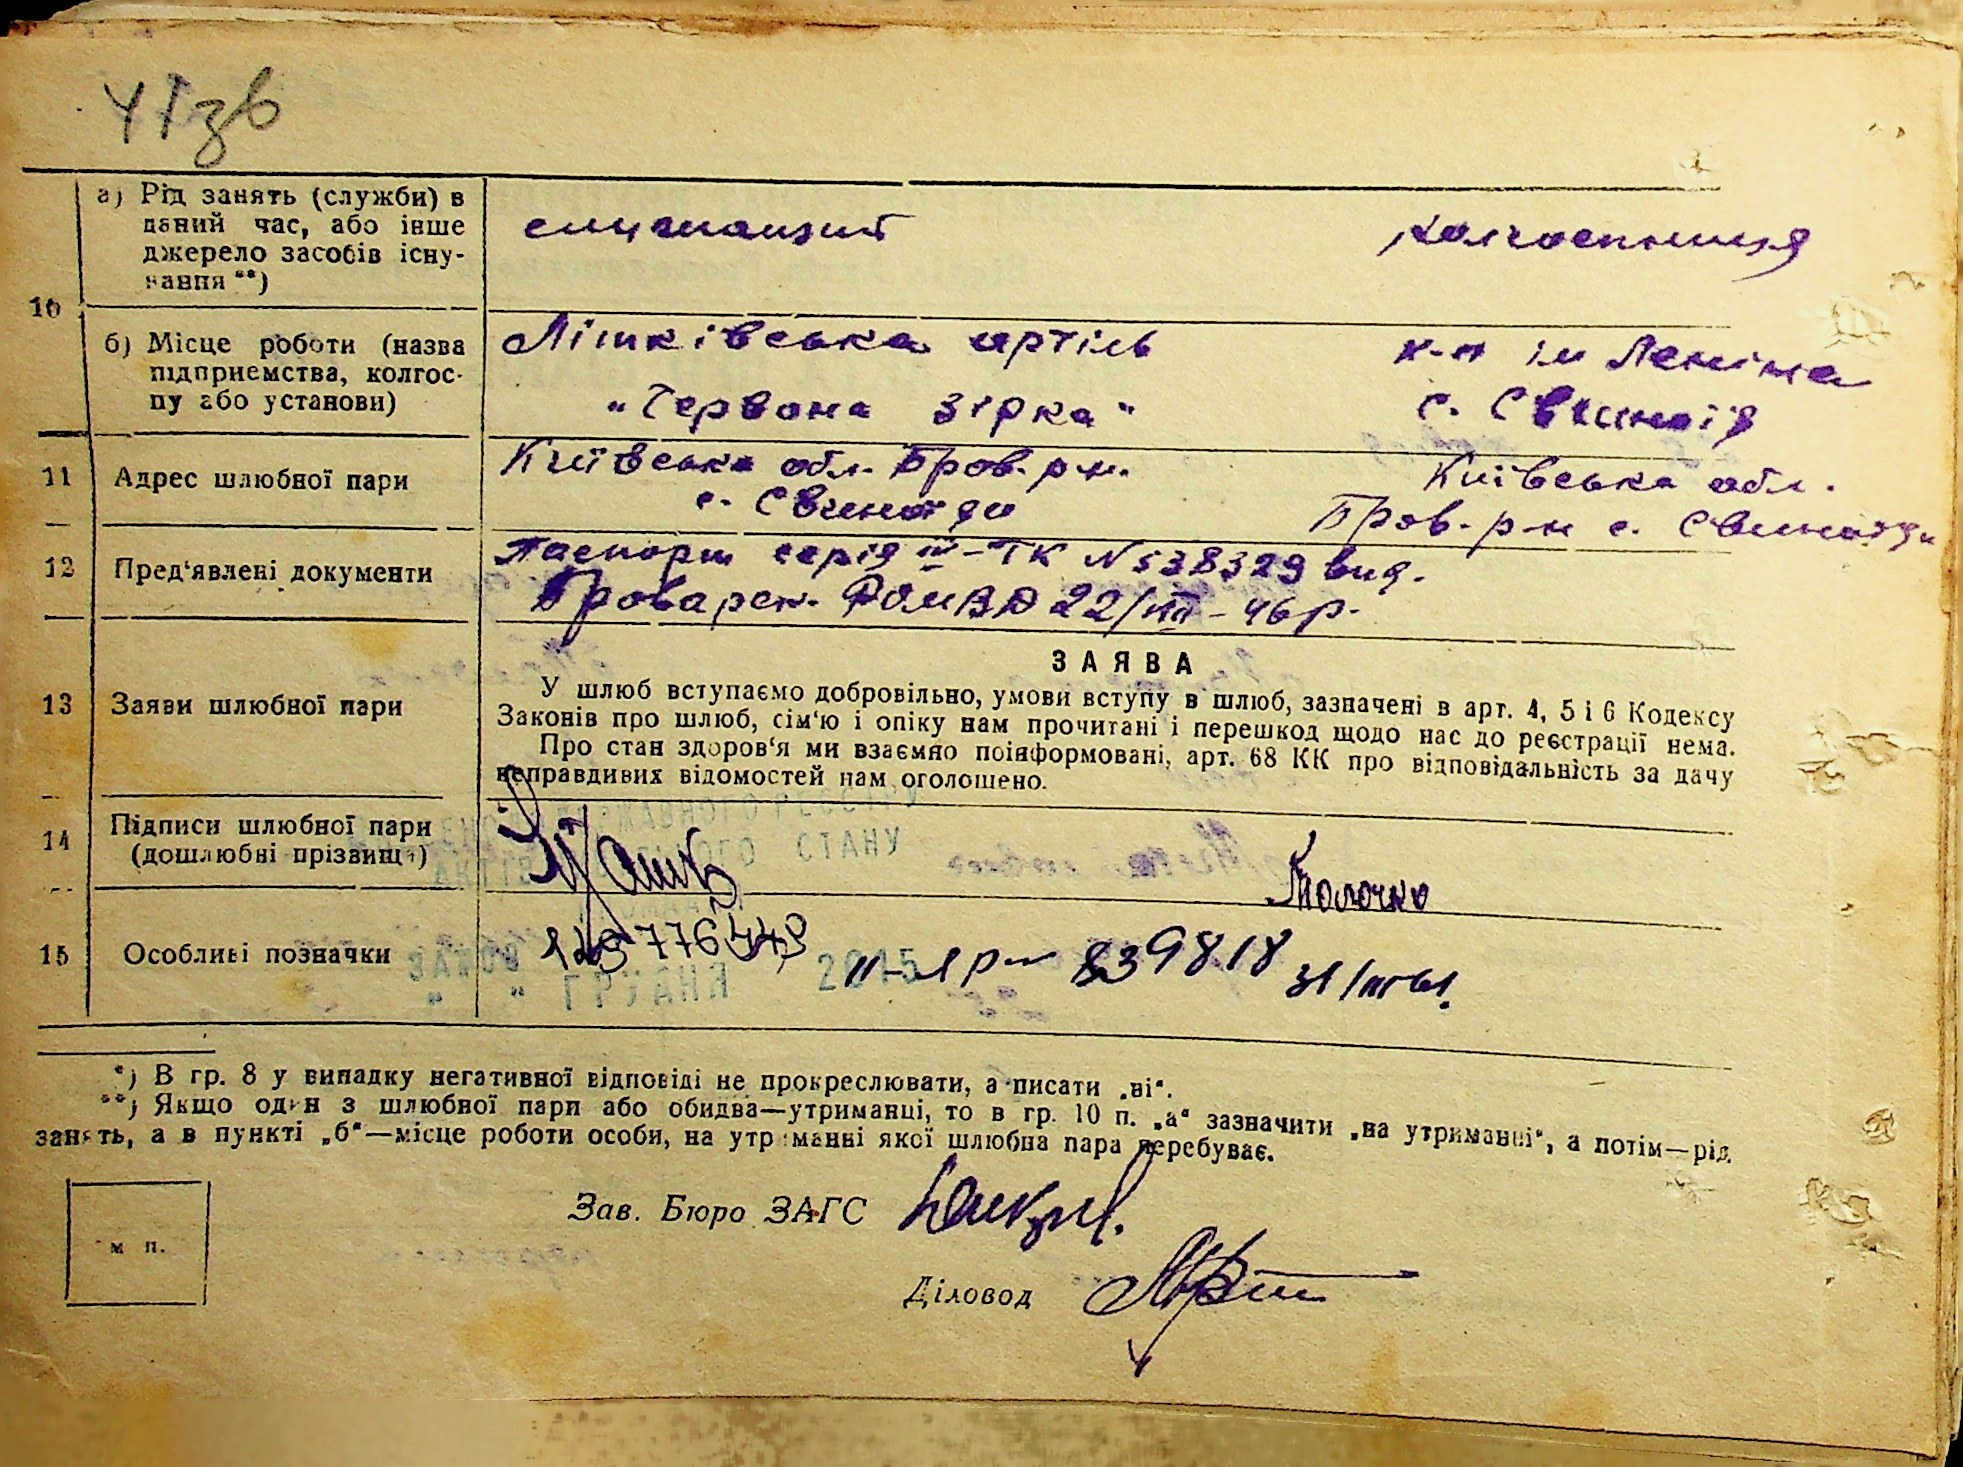 41зв
10
а) Рід занять (служби) в
даний час, або інше
джерело засобів існу-
вання **)
служащий
колгоспниця
б) Місце роботи (назва
підприємства, колгос-
пу або установи)
Літківська артіль
"Червона зірка"
к-п ім Леніна
с.
11
Адрес шлюбної пари
Київська обл. Бров. р-н.
с.
Київська обл.
Бров. р-н с.
12
Пред'явлені документи
Паспорт серія III-ТК N 538329 вид.
Броварск. РОМВД 22/VIII-46р.
13
Заяви шлюбної пари
ЗАЯВА
У шлюб вступаємо добровільно, умови вступу в шлюб, зазначені в арт. 4, 5 і 6 Кодексу
Законів про шлюб, сім'ю і опіку нам прочитані і перешкод щодо нас до реєстрації нема.
Про стан здоров'я ми взаємно поінформовані, арт. 68 КК про відповідальність за дачу
неправдивих відомостей нам оголошено.
14
Підписи шлюбної пари
(дошлюбні прізвища)
Молочко
СТАНУ
15
Особливі позначки
2015
ГРУДНЯ
839818
*) В гр. 8 у випадку негативної відповіді не прокреслювати, а писати „ні".
**) Якщо один з шлюбної пари або обидва—утриманці, то в гр. 10 п. „а" зазначити „на утриманні", а потім—рід
занять, а в пункті „б"—місце роботи особи, на утриманні якої шлюбна пара перебуває.
м п.
Зав. Бюро ЗАГС
Діловод